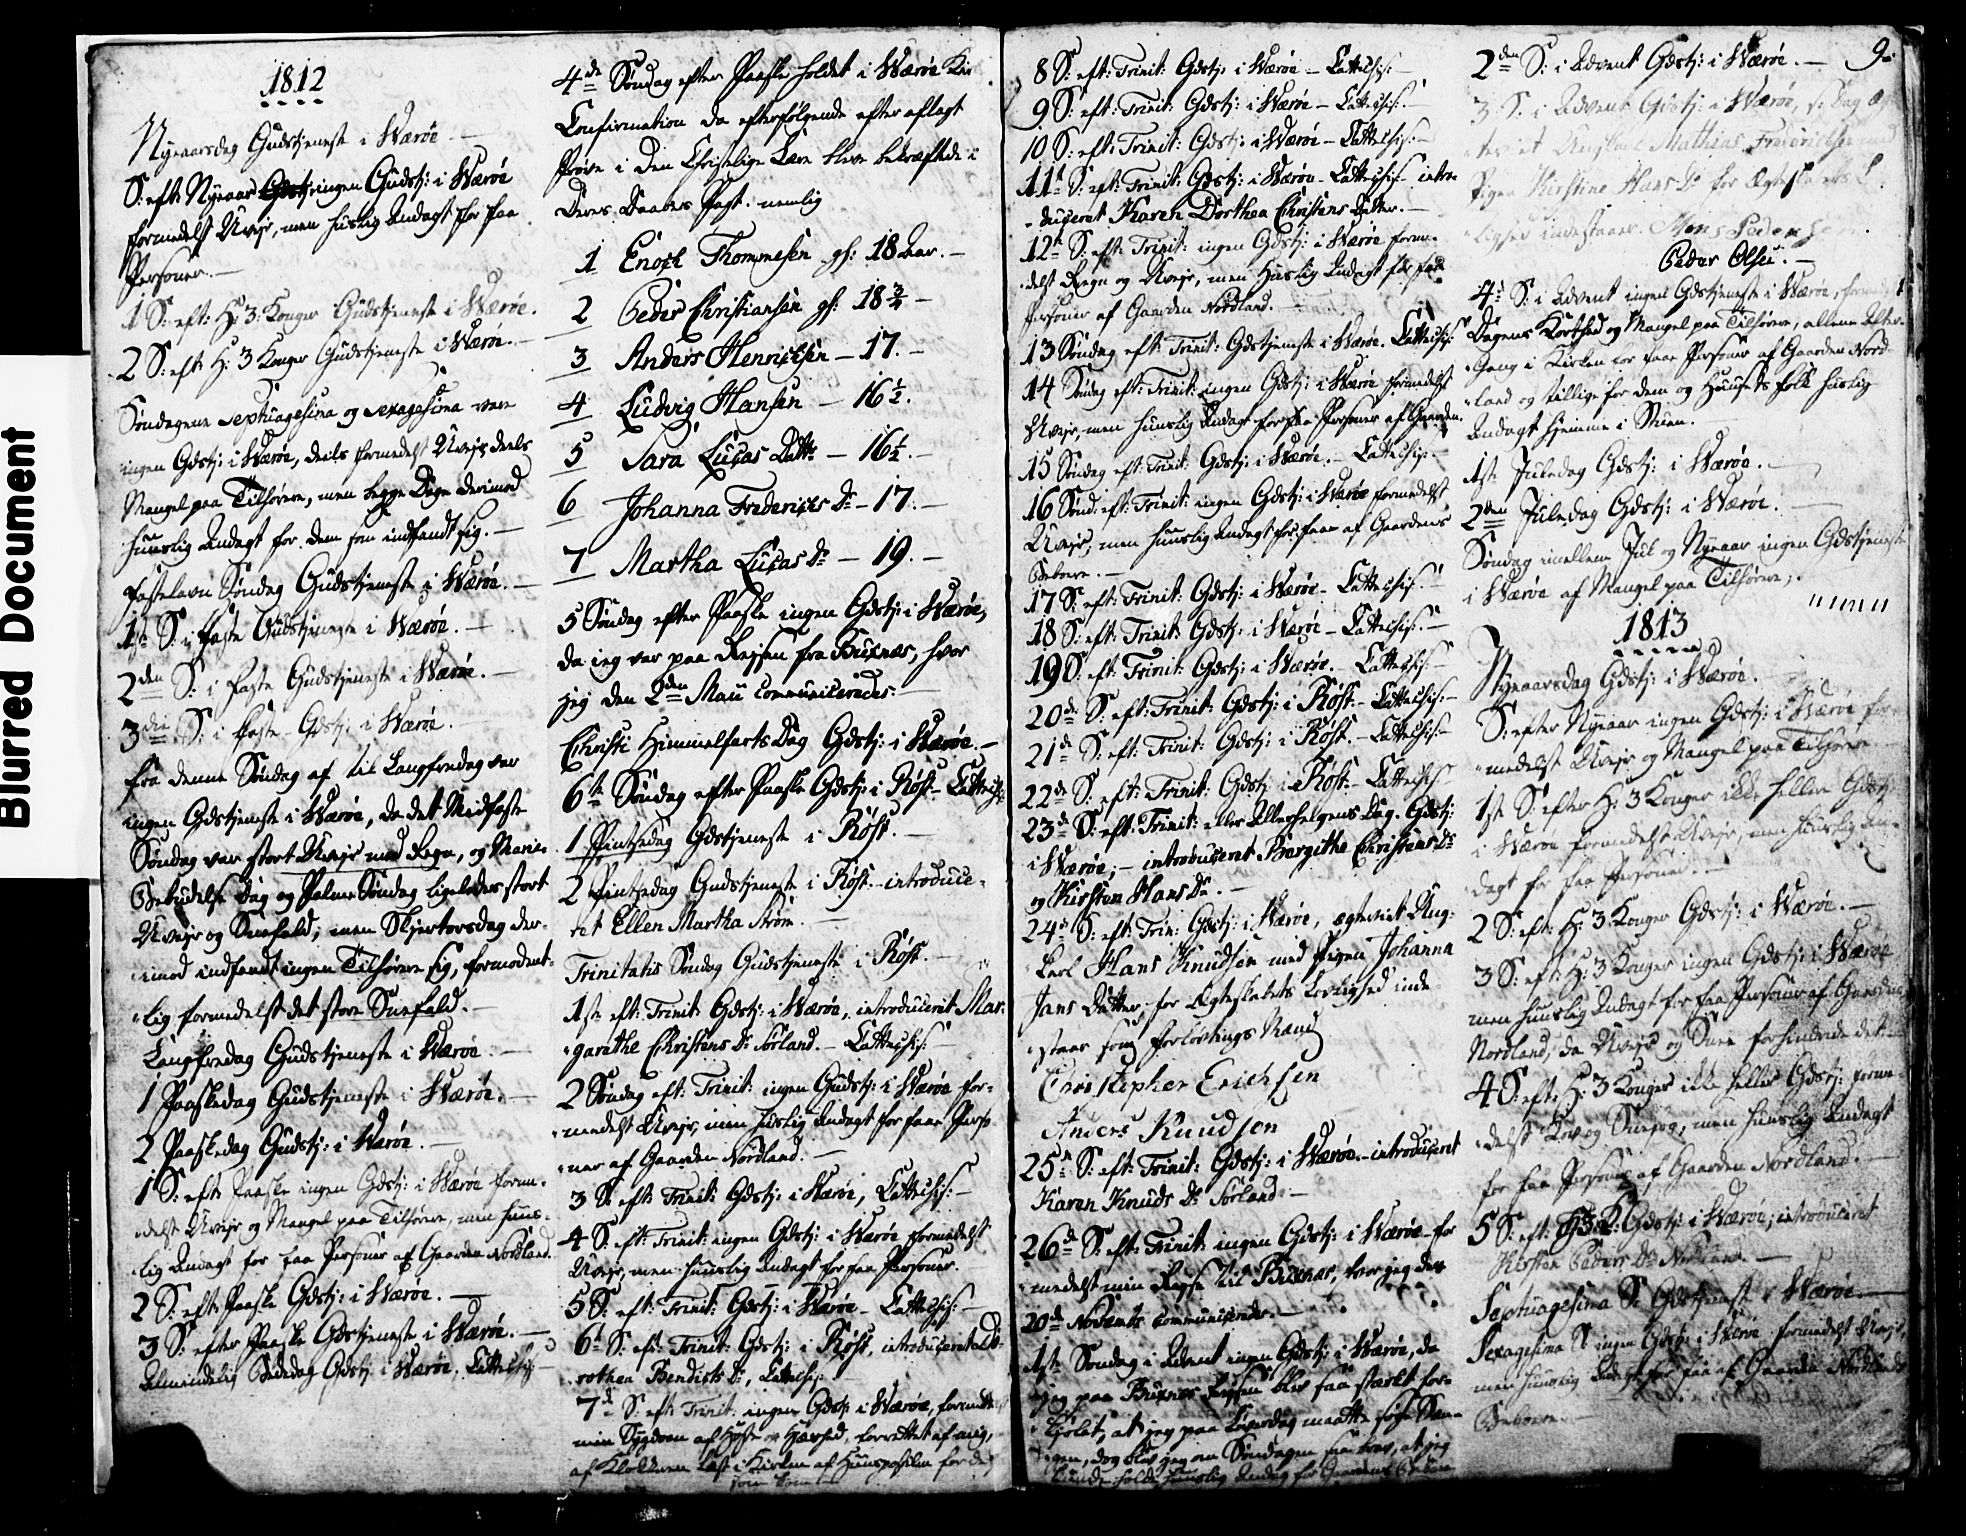 Blurred Document
1812
Nyeaarsdag Gudstjeneste i Værøe
S: eft: Nyeaar ingen Gudstj: i Værøe
formedelst Uvejr, men huuslig Andagt for faa
Personer. —
1 S: eft: H: 3 Konger Gudstjeneste i Værøe.
2 S: eft: H: 3 Konger Gudstjeneste i Værøe. —
Søndagene Septuagesima og Sexagesima var
ingen Gdstj: i Værøe, deels formedelst Uvejr deels
Mangel paa Tilhørere, men begge Dage derimod
huuslig Andagt for dem som indfandt sig. —
Fastelavn Søndag Gudstjeneste i Værøe. —
1ste S: i Faste Gudstjeneste i Værøe. —
2den S: i Faste Gudstjeneste i Værøe. —
3die S: i Faste Gdstj: i Værøe.
Fra denne Søndag af til Langfredag var
ingen Gdstjeneste i Værøe, da det Midfaste
Søndag var stort Uvejr med Regn, og Mariæ
Bebudelse Dag og Palme Søndag ligeledes stort
Uvejr og Sneefald; men Skjertorsdag der-
imod indfandt ingen Tilhørere sig, formodent-
lig formedelst det store Sneefald. —
Langfredag Gudstjeneste i Værøe. —
1 Paaskedag Gudstjeneste i Værøe. —
2 Paaskedag Gudstj: i Værøe. —
1 S: eft: Paaske ingen Gdstj: i Værøe forme-
delst Uvejr og Mangel paa Tilhørere, men huus-
lig Andagt for faa Personer af Gaarden Nordland.
2 S: eft: Paaske Gdstj: i Værøe. —
3 S: efter Paaske Gdstjeneste i Værøe. —
Almindelig Bededag Gdstj: i Værøe, Cattechis: —
4de Søndag efter Paaske holdet i Værøe
Confirmation da efterfølgende efter aflagt
Prøve i den Christelige Lære bleve bekræftede i
Deres Daabes Pagt. nemlig
1 Enoch Thommesen gl: 18 Aar. —
2 Peder Christiansen gl: 18 3/4 —
3 Anders Henrichsen — 17. —
4 Ludvig Hansen — 16 1/2.
5 Sara Lucas Datt: — 16 1/2. —
6 Johanna Frederichs Dr — 17. —
7 Martha Lucas Dr — 19. —
5 Søndag efter Paaske ingen Gdstj: i Værøe,
da jeg var paa Rejsen fra Buxnæs, hvor
jeg den 2den Maii communicerede. —
Christi Himmelfarts Dag Gdstj: i Værøe. —
6te Søndag efter Paaske Gdstj: i Røst. — Cattechis:
1 Pintsedag Gdstjeneste i Røst. —
2 Pintsedag Gudstjeneste i Røst. — introduce-
ret Ellen Martha Strøm. —
Trinitatis Søndag Gudstjeneste i Røst. —
1ste eft: Trinit: Gdstj: i Værøe, introduceret Mar-
garethe Christens Dr Sørland. — Cattechis: —
2 Søndag eft: Trinit: ingen Gudstj: i Værøe for-
medelst Uvejr, men huuslig Andagt for faae Perso-
ner af Gaarden Nordland. —
3 S: eft: Trinit: Gdstj: i Værøe, Cattechis: —
4 S: eft: Trinit: ingen Gdstj: i Værøe formedelst
Uvejr, men huuslig Andagt for faa Personer.
5 S: eft: Trinit: Gdstj: i Værøe — Cattechis: —
6te S: eft: Trinit: Gdstj: i Røst, introduceret Do-
rothea Bendicts Dr, Cattechis:
7de S: eft: Trinit: ingen Gdstj: i Værøe, formedelst
min Sygdom af Hoste og Hæshed, forrettet af mig,
af Klokkeren læst i Kirken af Huuspostillen for de
som kom
8 S: eft: Trinit: Gdstj: i Værøe — Cattechis: —
9 S: eft: Trinit: Gdstj: i Værøe — Cattechis: —
10 S: eft: Trinit: Gdstj: i Værøe — Cattechis: —
11te S: eft: Trinit: Gdstj: i Værøe — Cattechis: intro-
duceret Karen Dorthea Christens Datter. —
12te S: eft: Trinit: ingen Gdstj: i Værøe forme-
delst Regn og Uvejr, men huuslig Andagt for faa
Personer af Gaarden Nordland. —
13 Søndag eft: Trinit: Gdstjeneste i Værøe. Cattechis:
14 Søndag eft: Trinit: ingen Gdstj: i Værøe formedelst
Uvejr, men huuslig Andagt for faa Personer af Gaarden.
15 Søndag eft: Trinit: Gdstj: i Værøe. — Cattechis: —
16 Sønd: eft: Trinit: ingen Gdstj: i Værøe formedelst
Uvejr, men huuslig Andagt for faae af Gaardens
Beboere. —
17 S: eft: Trinit: Gdstj: i Værøe — Cattechis: —
18 S: eft: Trinit: Gdstj: i Værøe — Cattechis: —
19 S: eft: Trinit: Gdstj: i Værøe. — Cattechis: —
20de S: eft: Trinit: Gdstj: i Røst. — Cattechis: —
21de S: eft: Trinit: Gdstj: i Røst. — Cattechis: —
22de S: eft: Trinit: Gdstj: i Røst — Cattechis:
23de S: eft: Trinit: eller Allehelgens Dag. Gdstj:
i Værøe; — introduceret Bergithe Christens Dr
og Kirsten Hans Dr. —
24de S: eft: Trin: Gdstj: i Værøe, ægteviet Ung-
karl Hans Knudsen med Pigen Johanna
Jans Datter, for Ægteskabets Lovlighed inde-
staar som Forlovnings Mænd
Christopher Erichsen
Anders Knudsen
25de S: eft: Trinit: Gdstj: i Værøe — introduceret
Karen Knuds Dr Sørland —
26de S: eft: Trinit: ingen Gdstj: i Værøe for-
medelst min Rejse til Buxnæs, hvor jeg den
20de Novembr communicerede. —
1ste Søndag i Advent ingen Gdstj: i Værøe, da
jeg paa Buxnæs Rejsen blev saa stærkt for-
kjølet, at jeg paa Løverdag maatte søge Sæn-
gen, dog blev jeg om Søndagen saa brav, at jeg
kunde holde huuslig Andagt for Gaardens Beboere
9.
2den S: i Advent Gdstj: i Værøe. —
3 S: i Advent Gdstj: i Værøe, s: Dag Æg-
teviet Ungkarl Mathias Fredrichsen med
Pigen Kirstine Hans Dr for Ægteskabets L
lighed indestaaer. Mons Pedersen
Peder Olsen. —
4de S: i Advent ingen Gdstjeneste i Værøe, formedelst
Dagens Korthed og Mangel paa Tilhørere, allene Alter-
Gang i Kirken for faae Personer af Gaarden Nord-
land og tillige for dem og Huusets Folk huslig
Andagt hjemme i Stuen.
1ste Juledag Gdstj: i Værøe. —
2den Juledag Gdstj: i Værøe. —
Søndag mellem Juul og Nyeaar ingen Gdstjeneste
i Værøe af Mangel paa Tilhørere;.
1813
Nyeaarsdag Gdstj: i Værøe.
S: efter Nyeaar ingen Gdstj: i Værøe for-
medelst Uvejr og Mangel paa Tilhørere
1ste S: efter H: 3 Konger ikke heller Gdstj:
i Værøe formedelst Uvejr, men huuslig An-
dagt for faa Personer. —
2 S: eft: H: 3 Konger Gdstj: i Værøe. —
3 S: eft: H: 3 Konger ingen Gdstj: i Værøe
men huuslig Andagt for faa Personer af Gaarden
Nordland, da Uvejr og Snee forhindrede det.
4 S: eft: H: 3 Konger ikke heller Gdstj: forme-
delst Kov og Sneefog, men huuslig Andagt
for faa Personer af Gaarden Nordland. —
5 S: eft: H: 3 K: Gdstj: i Værøe; introduceret
Kirsten Peders Dr Nordland. —
Septuagesima S: Gdstjeneste i Værøe. —
Sexagesima S: ingen Gdstj: i Værøe formedelst Uvejr,
men huuslig Andagt for faa af Gaarden Nordlands
Beboere. —